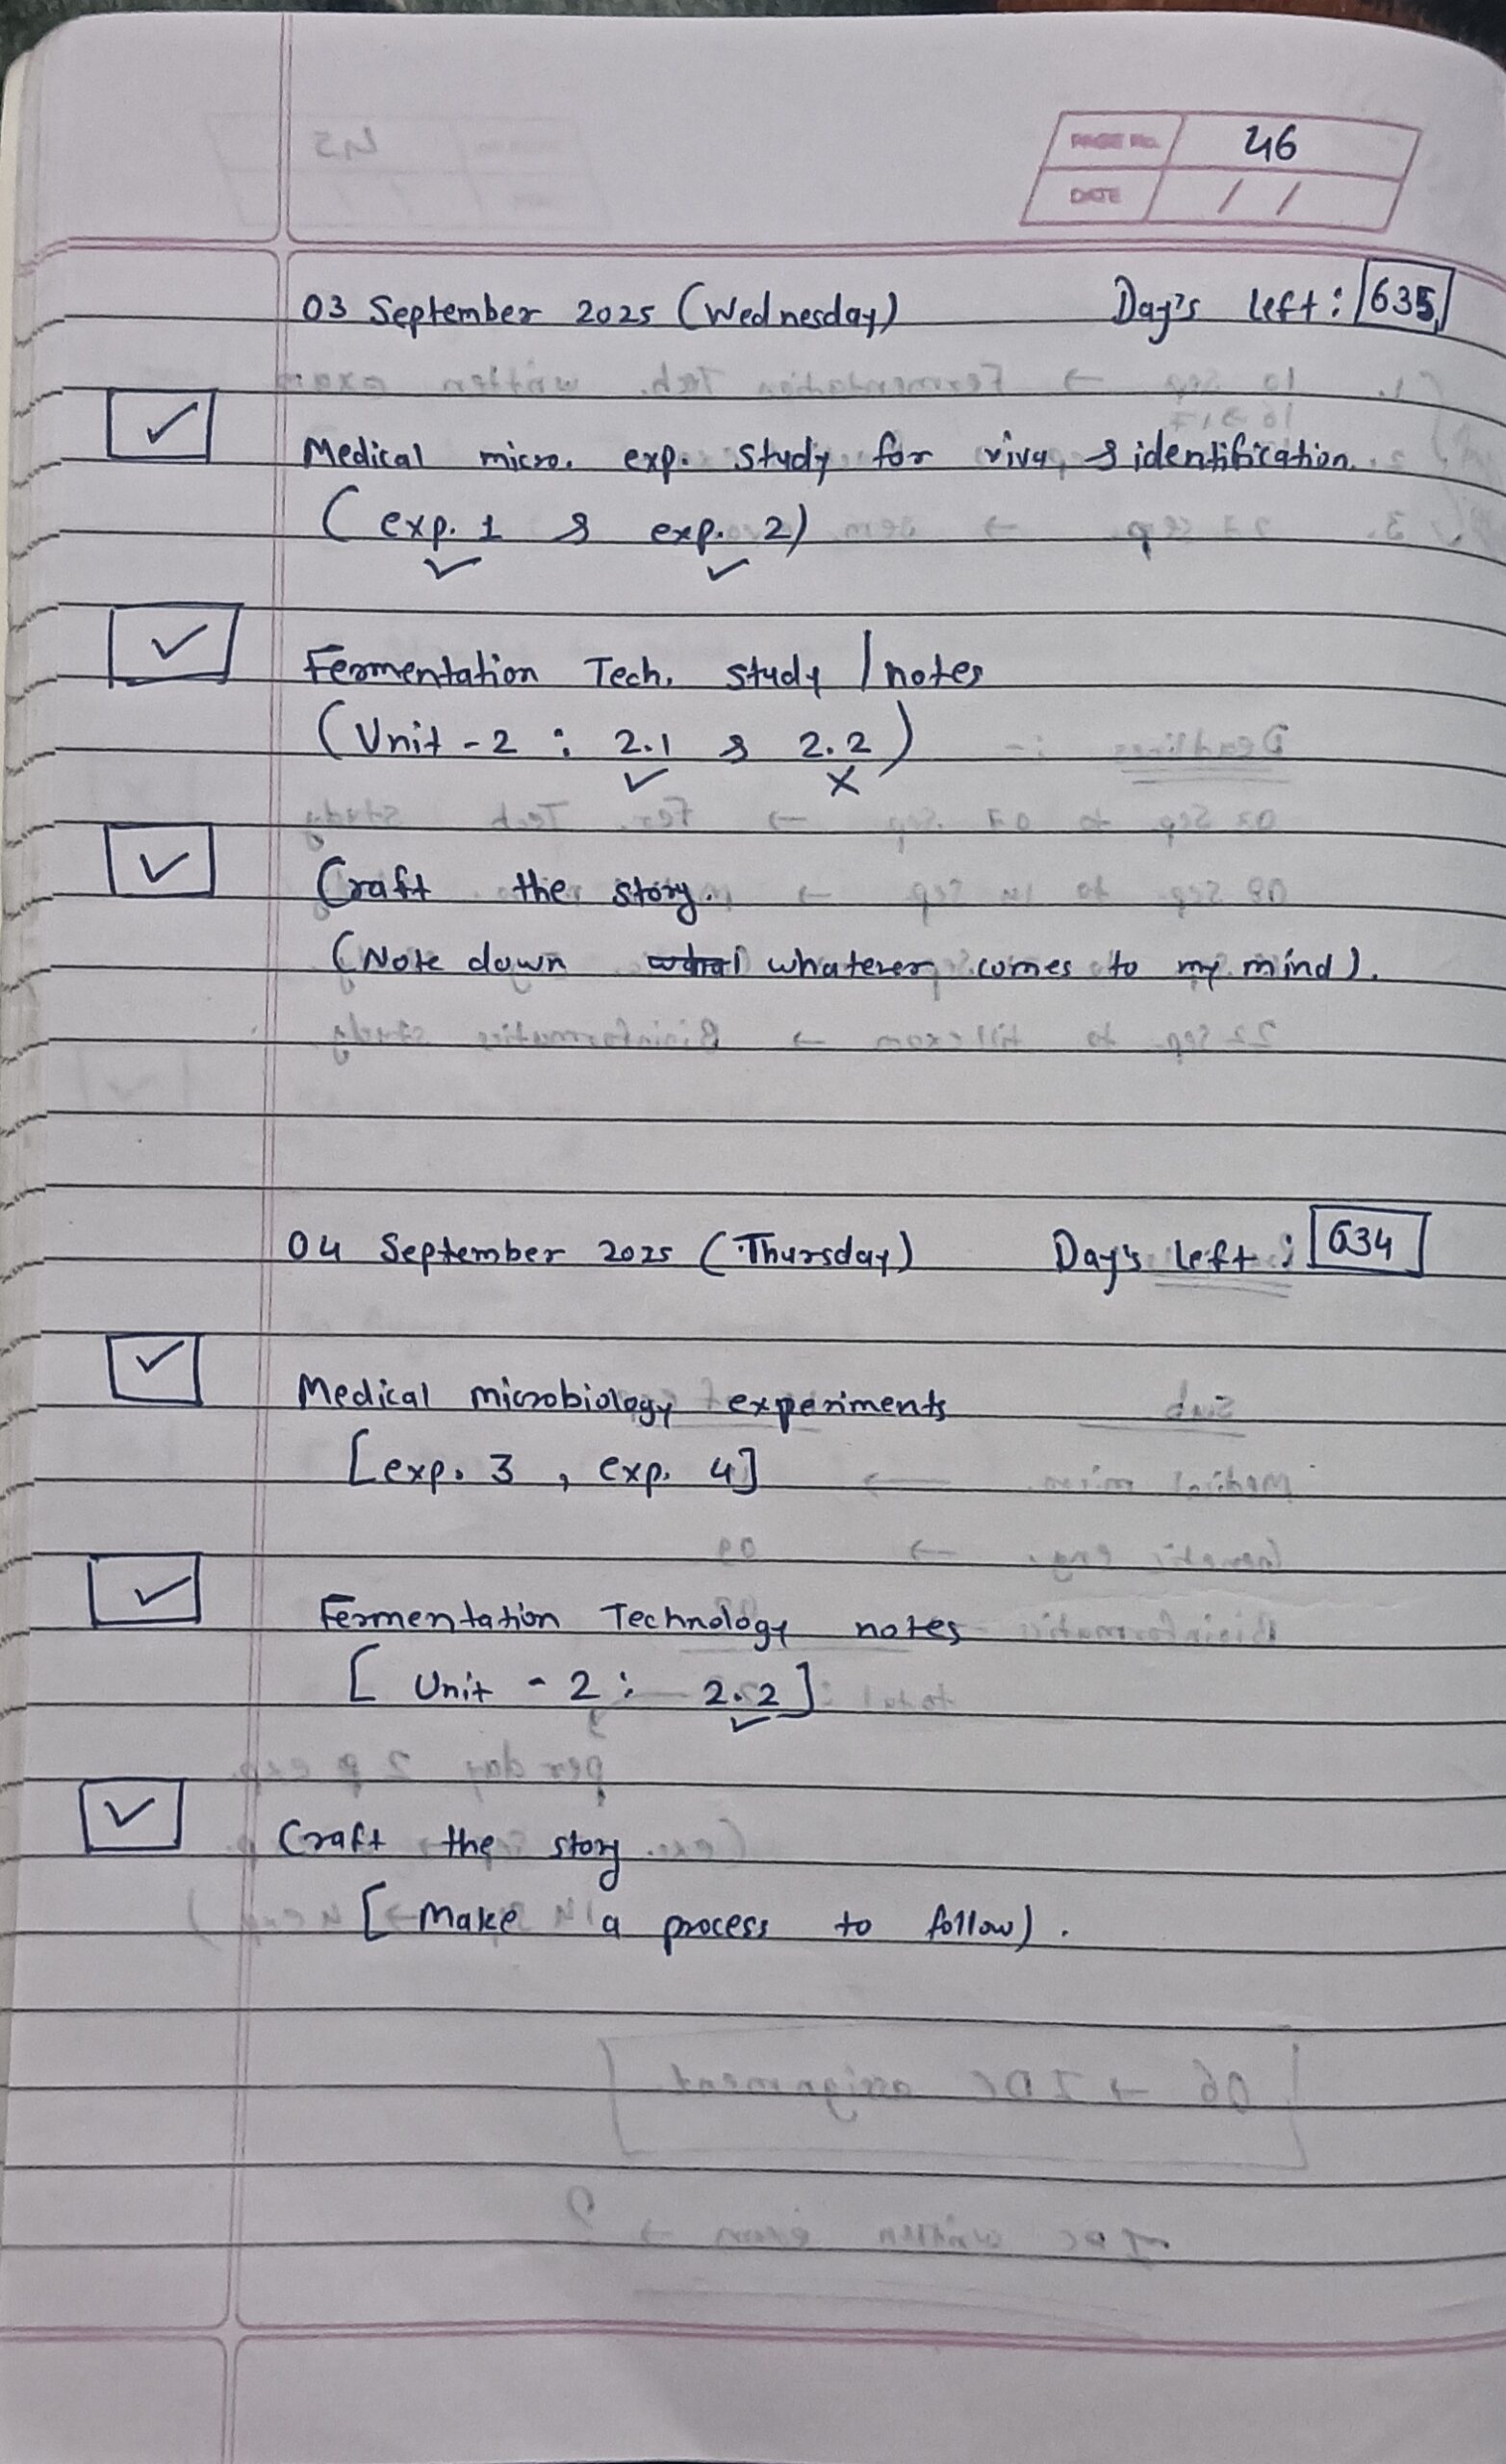 PAGE No. 46
DATE / /
03 September 2025 (Wednesday) Day's left : 635
✓ Medical micro. exp. study for viva & identification.
(exp. 1 & exp. 2)
✓ ✓
✓ Fermentation Tech. study / notes
(Unit - 2 : 2.1 & 2.2)
✓ x
✓ Craft the story.
(Note down whatever comes to my mind).
04 September 2025 (Thursday) Day's left : 634
✓ Medical microbiology experiments
[exp. 3 , exp. 4]
✓ Fermentation Technology notes
[Unit - 2 : 2.2]
✓
✓ Craft the story
[Make a process to follow).